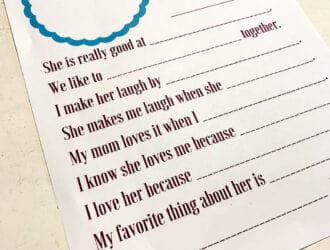 She is really good at
We like to together.
I make her laugh by
She makes me laugh when she
My mom loves it when I
I know she loves me because
I love her because
My favorite thing about her is